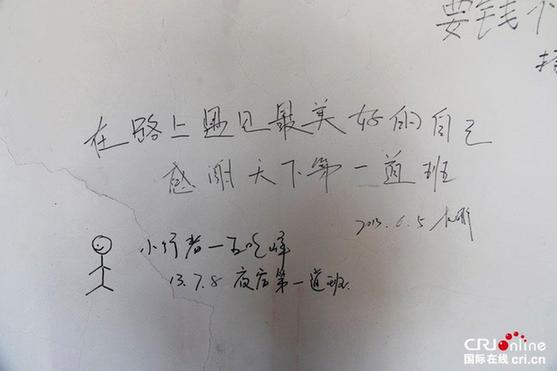 要钱
在路上遇见最美好的自己
感谢天下第一道班
2013.6.5
小行者一
13.7.8 夜宿第一道班
CRIonline
国际在线 cri.cn